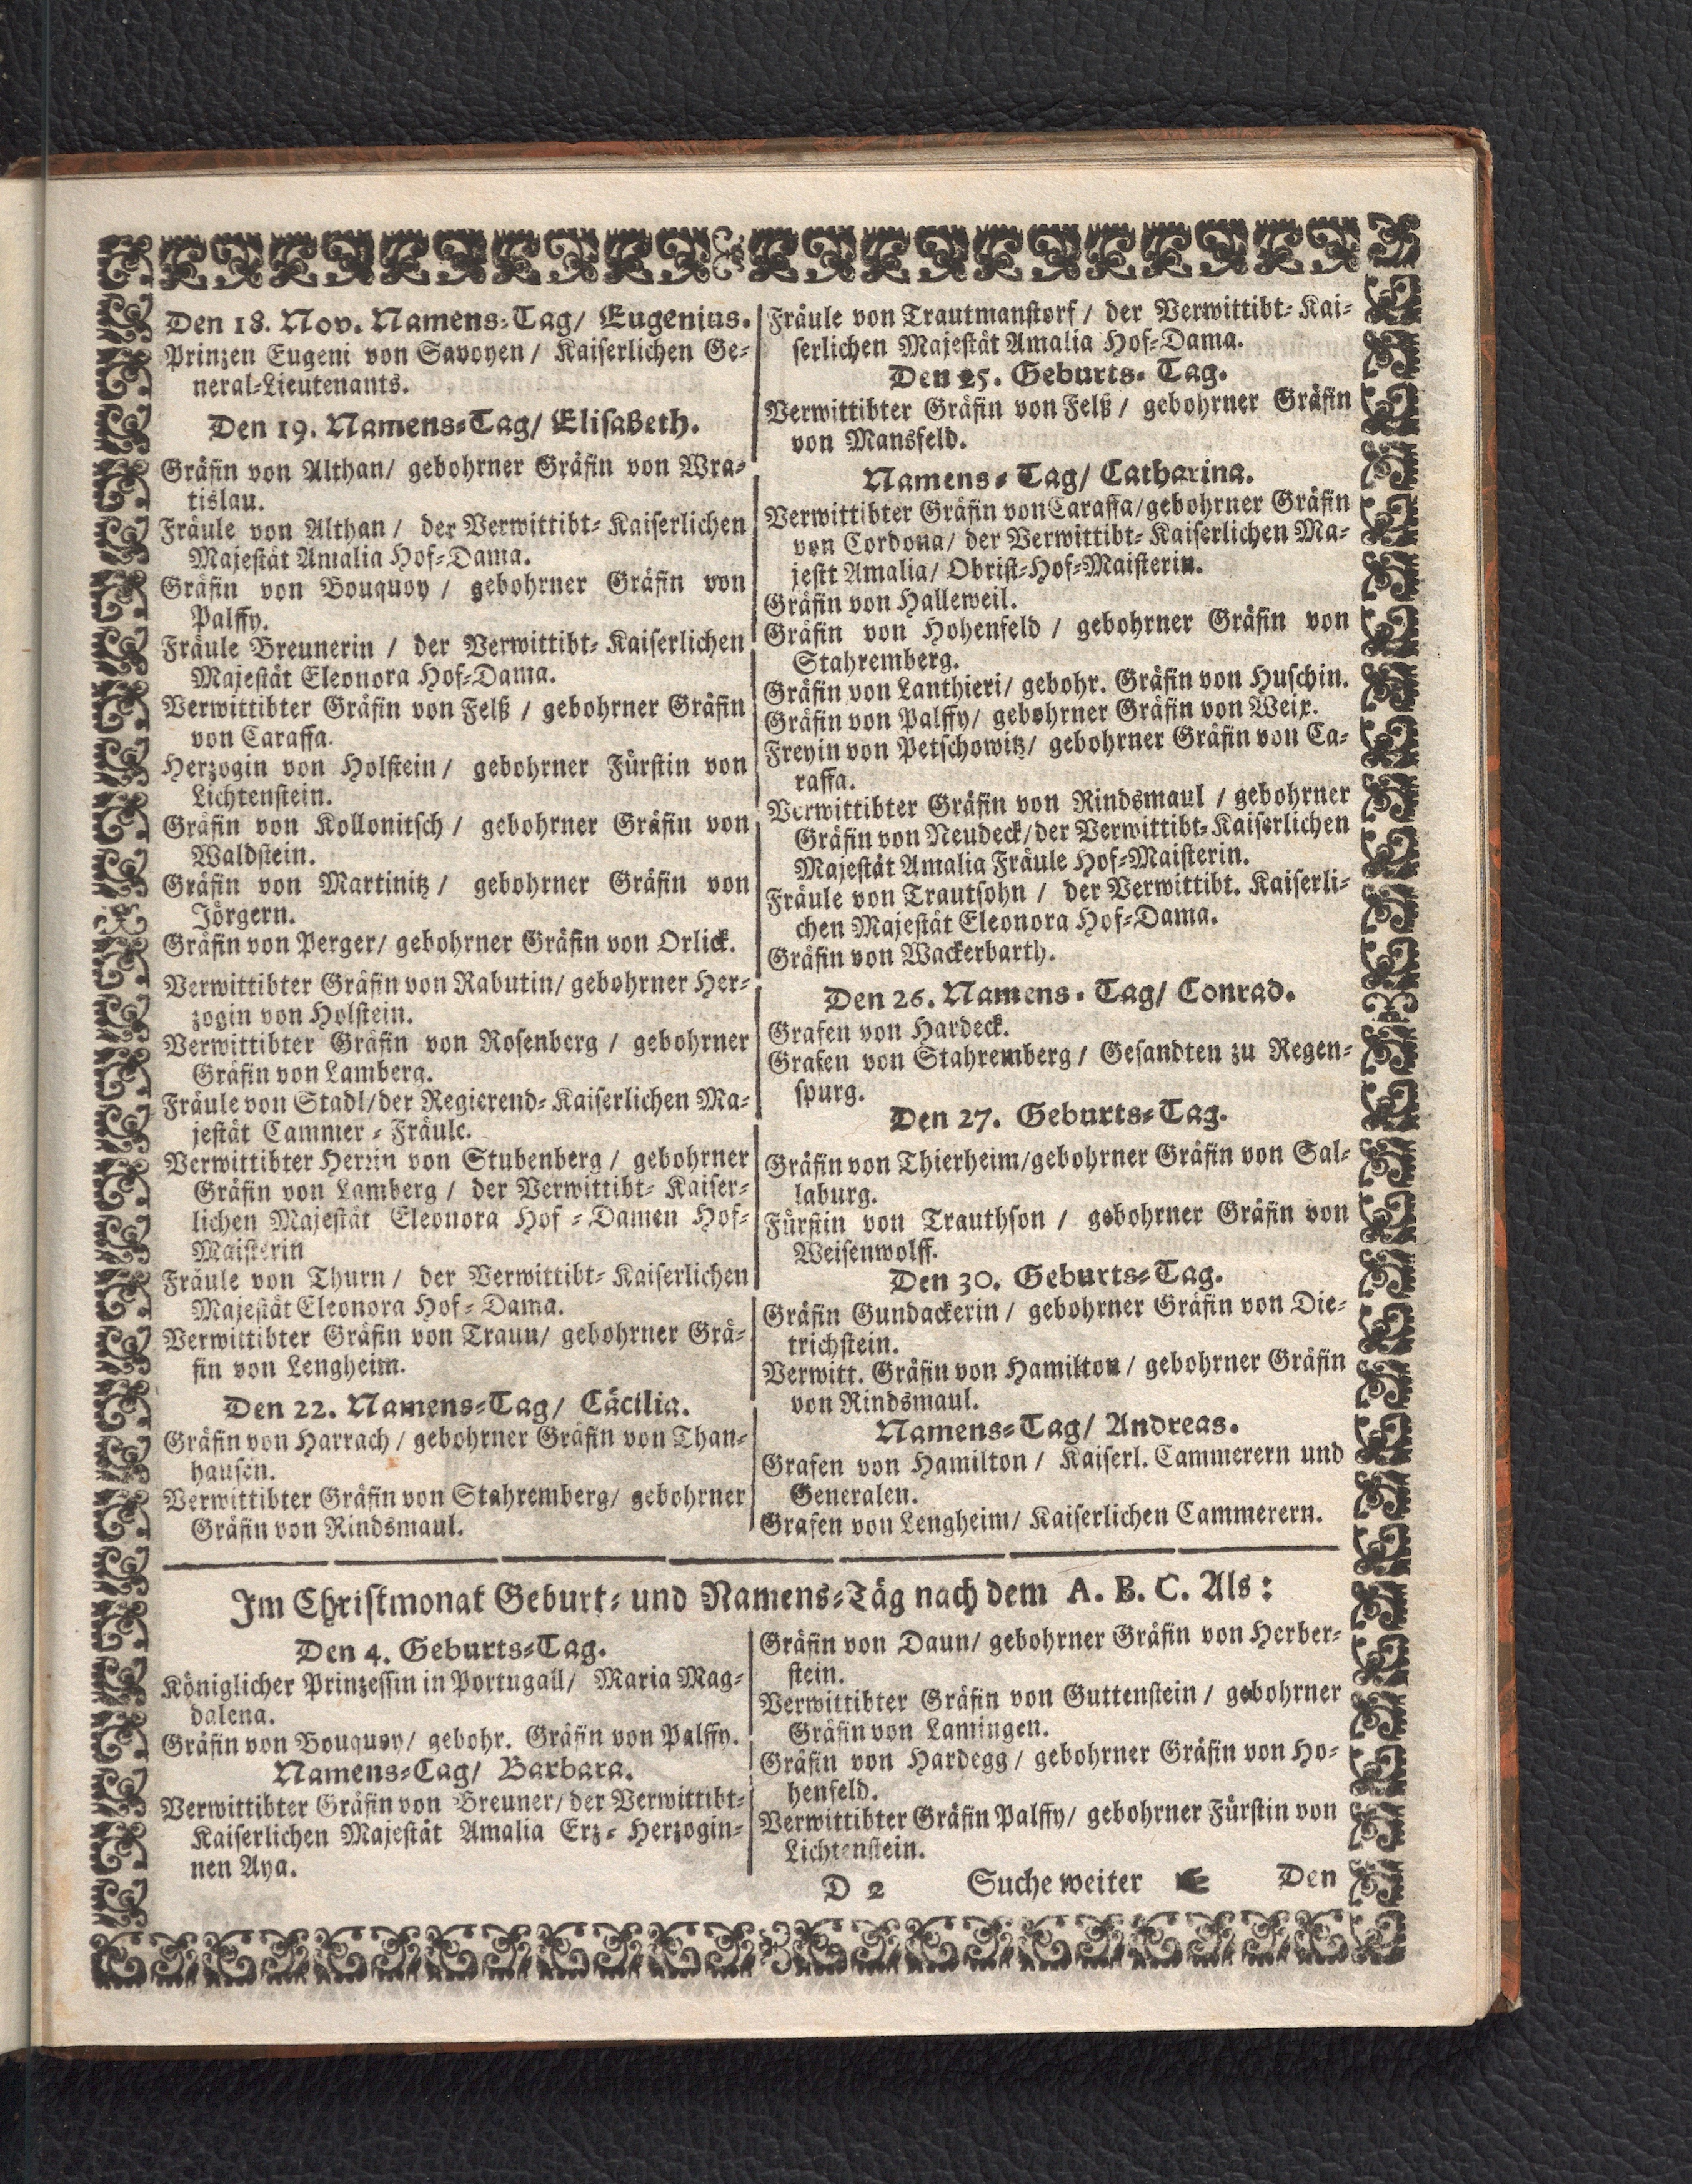 Den 18. Nov. Namens-Tag/ Eugenius.
Prinzen Eugeni von Savoyen/ Kaiserlichen Ge-
neral-Lieutenants.
Den 19. Namens-Tag/ Elisabeth.
Gräfin von Althan/ gebohrner Gräfin von Wra-
tislau.
Fräule von Althan/ der Verwittibt-Kaiserlichen
Majestät Amalia Hof-Dama.
Gräfin von Bouquoy/ gebohrner Gräfin von
Palffy.
Fräule Breunerin/ der Verwittibt-Kaiserlichen
Majestät Eleonora Hof-Dama.
Verwittibter Gräfin von Felß/ gebohrner Gräfin
von Caraffa.
Herzogin von Holstein/ gebohrner Fürstin von
Lichtenstein.
Gräfin von Kollonitsch/ gebohrner Gräfin von
Waldstein.
Gräfin von Martinitz/ gebohrner Gräfin von
Jörgern.
Gräfin von Perger/ gebohrner Gräfin von Orlick.
Verwittibter Gräfin von Rabutin/ gebohrner Her-
zogin von Holstein.
Verwittibter Gräfin von Rosenberg/ gebohrner
Gräfin von Lamberg.
Fräule von Stadl/der Regierend-Kaiserlichen Ma-
jestät Cammer-Fräule.
Verwittibter Herrin von Stubenberg/ gebohrner
Gräfin von Lamberg/ der Verwittibt-Kaiser-
lichen Majestät Eleonora Hof-Damen Hof-
Maisterin
Fräule von Thurn/ der Verwittibt-Kaiserlichen
Majestät Eleonora Hof-Dama.
Verwittibter Gräfin von Traun/ gebohrner Grä-
fin von Lengheim.
Den 22. Namens-Tag/ Cäcilia.
Gräfin von Harrach/ gebohrner Gräfin von Than-
hausen.
Verwittibter Gräfin von Stahremberg/ gebohrner
Gräfin von Rindsmaul.
Fräule von Trautmanstorf/ der Verwittibt-Kai-
serlichen Majestät Amalia Hof-Dama.
Den 25. Geburts-Tag.
Verwittibter Gräfin von Felß/ gebohrner Gräfin
von Mansfeld.
Namens-Tag/ Catharina.
Verwittibter Gräfin von Caraffa/gebohrner Gräfin
von Cordona/ der Verwittibt-Kaiserlichen Ma-
jestt Amalia/ Obrist-Hof-Maisterin.
Gräfin von Halleweil.
Gräfin von Hohenfeld/ gebohrner Gräfin von
Stahremberg.
Gräfin von Lanthieri/ gebohr. Gräfin von Huschin.
Gräfin von Palffy/ gebohrner Gräfin von Weix.
Freyin von Petschowitz/ gebohrner Gräfin von Ca-
raffa.
Verwittibter Gräfin von Rindsmaul/ gebohrner
Gräfin von Neudeck/der Verwittibt-Kaiserlichen
Majestät Amalia Fräule Hof-Maisterin.
Fräule von Trautsohn/ der Verwittibt. Kaiserli-
chen Majestät Eleonora Hof-Dama.
Gräfin von Wackerbarth.
Den 26. Namens-Tag/ Conrad.
Grafen von Hardeck.
Grafen von Stahremberg/ Gesandten zu Regen-
spurg.
Den 27. Geburts-Tag.
Gräfin von Thierheim/gebohrner Gräfin von Sal-
laburg.
Fürstin von Trauthson/ gebohrner Gräfin von
Weisenwolff.
Den 30. Geburts-Tag.
Gräfin Gundackerin/ gebohrner Gräfin von Die-
trichstein.
Verwitt. Gräfin von Hamilton/ gebohrner Gräfin
von Rindsmaul.
Namens-Tag/ Andreas.
Grafen von Hamilton/ Kaiserl. Cammerern und
Generalen.
Grafen von Lengheim/ Kaiserlichen Cammerern.
Im Christmonat Geburt- und Namens-Täg nach dem A. B. C. Als:
Den 4. Geburts-Tag.
Königlicher Prinzessin in Portugall/ Maria Mag-
dalena.
Gräfin von Bouquoy/ gebohr. Gräfin von Palffy.
Namens-Tag/ Barbara.
Verwittibter Gräfin von Breuner/der Verwittibt-
Kaiserlichen Majestät Amalia Erz-Herzogin-
nen Aya.
Gräfin von Daun/ gebohrner Gräfin von Herber-
stein.
Verwittibter Gräfin von Guttenstein/ gebohrner
Gräfin von Lamingen.
Gräfin von Hardegg/ gebohrner Gräfin von Ho-
henfeld.
Verwittibter Gräfin Palffy/ gebohrner Fürstin von
Lichtenstein.
D 2 Suche weiter ☛ Den